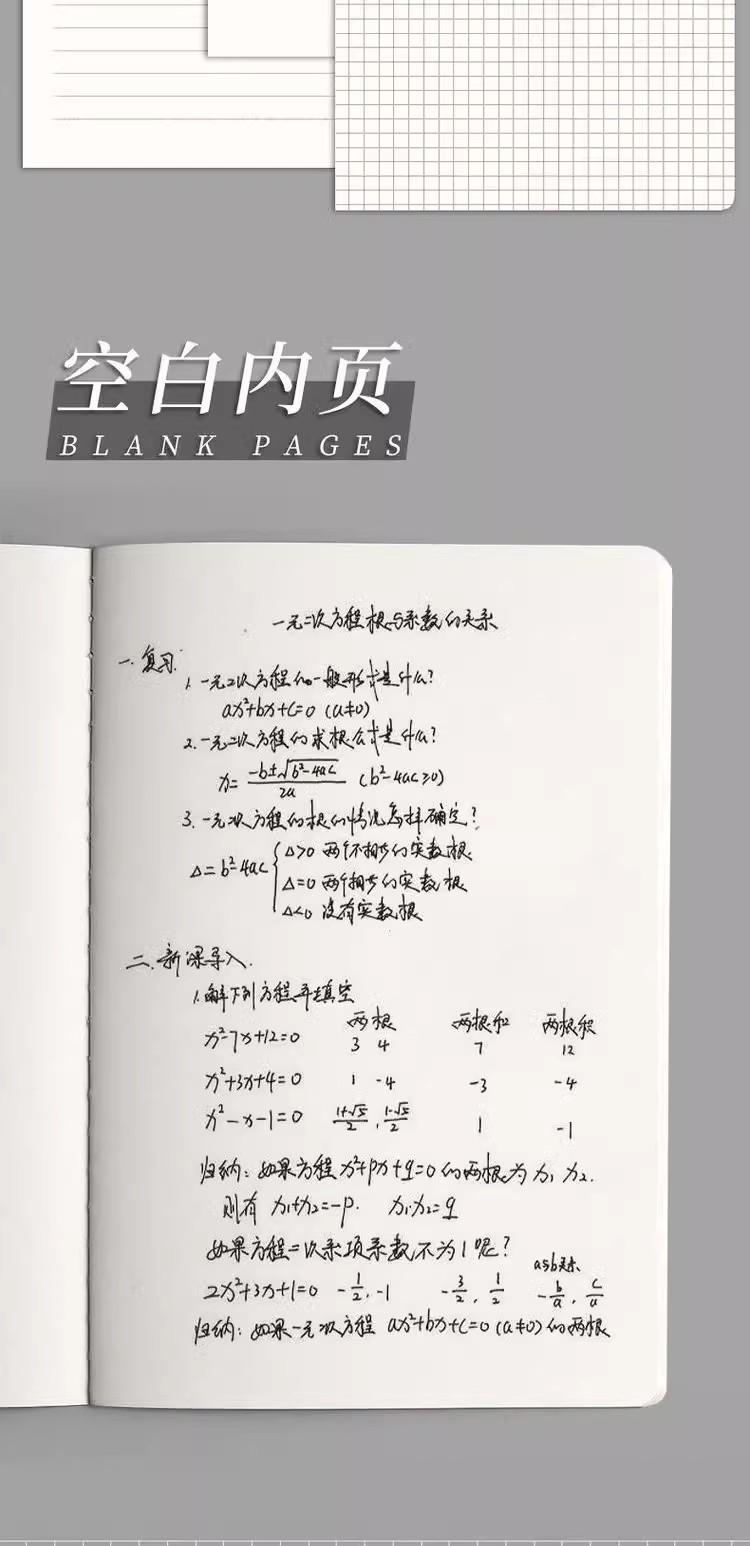 空白内页
BLANK PAGES
一元二次方程根与系数的关系
一. 复习.
1. 一元二次方程的一般形式是什么?
ax²+bx+c=0 (a≠0)
2. 一元二次方程的求根公式是什么?
x= -b±√b²-4ac / 2a (b²-4ac≥0)
3. 一元二次方程的根的情况怎样确定?
Δ=b²-4ac { Δ>0 两个不相等的实数根
Δ=0 两个相等的实数根
Δ<0 没有实数根
二. 新课导入.
1. 解下列方程并填空
两根 两根和 两根积
x²-7x+12=0 3 4 7 12
x²+3x+4=0 1 -4 -3 -4
x²-x-1=0 1+√5/2, 1-√5/2 1 -1
归纳: 如果方程x²+px+q=0的两根为x₁ x₂.
则有 x₁+x₂=-p. x₁·x₂=q
如果方程二次系项系数不为1呢?
a与b关系.
2x²+3x+1=0 -1/2, -1 -3/2, 1/2 -b/a, c/a
归纳: 如果一元二次方程 ax²+bx+c=0 (a≠0) 的两根